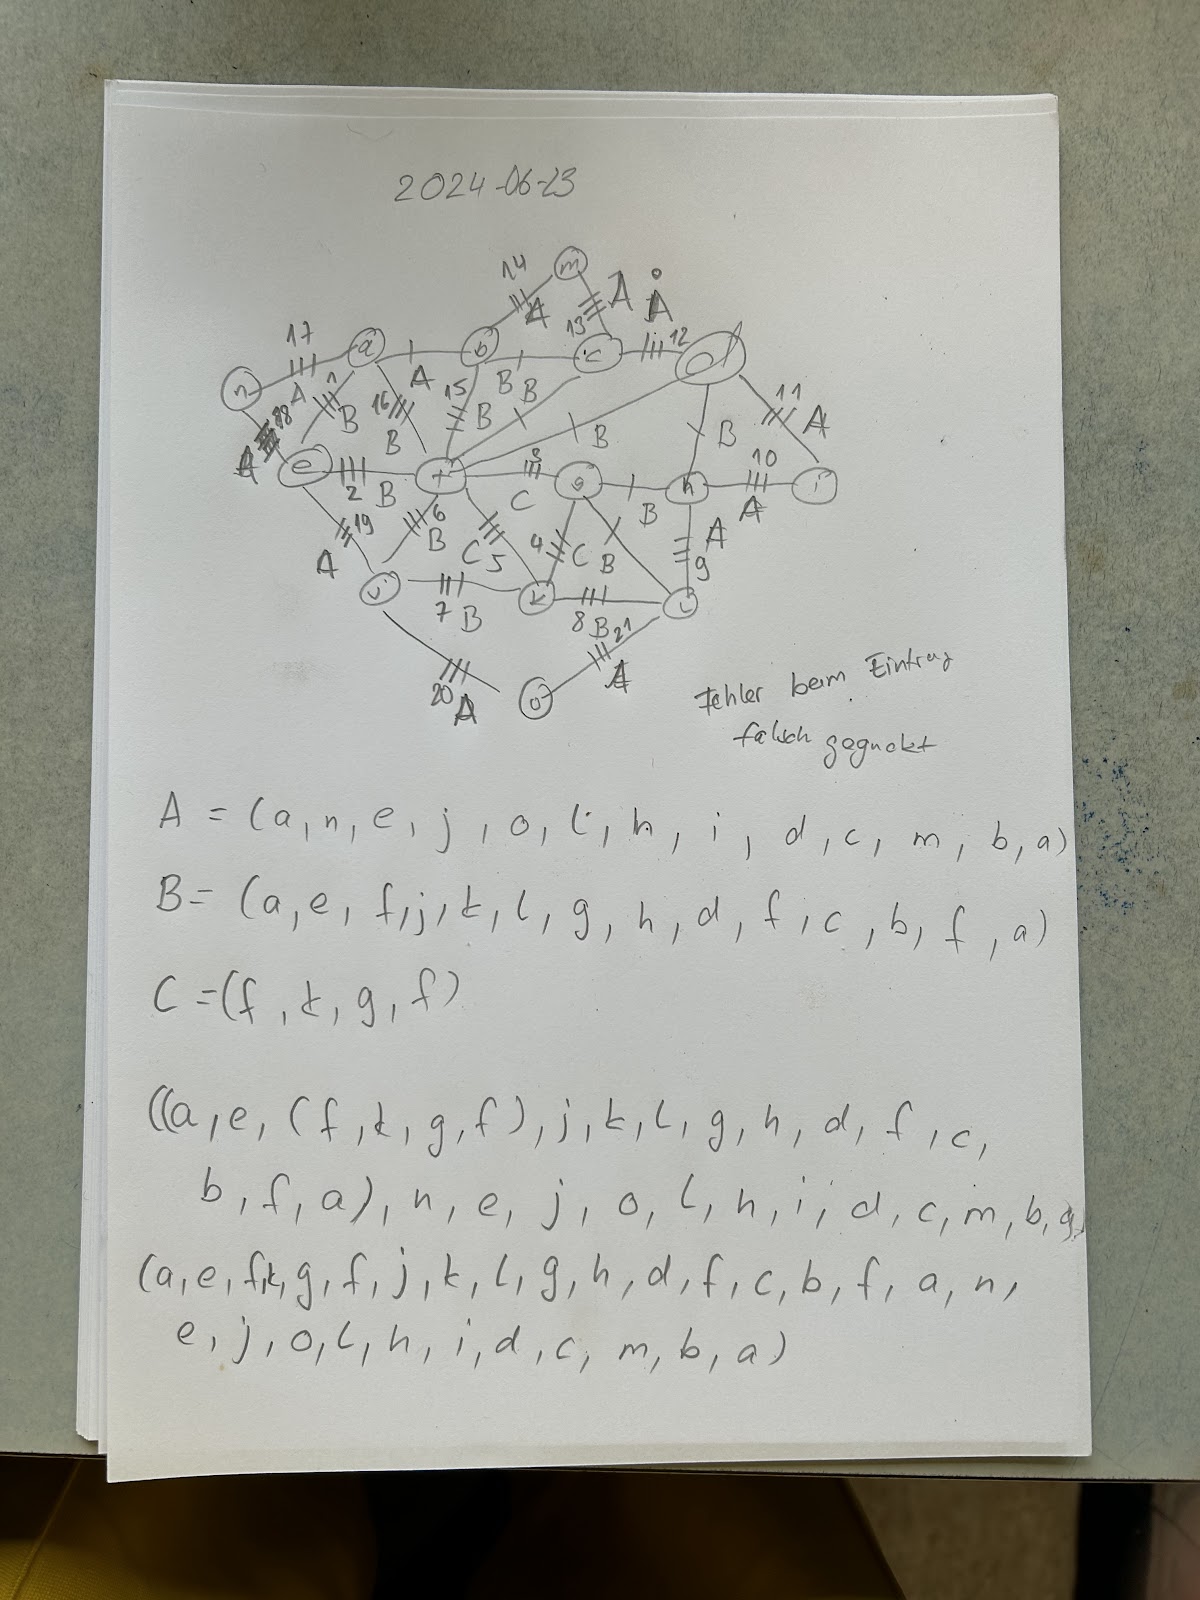 2024-06-23
14 m
A 13 A A
17 a A b B c 12 d
n A 1 B 16 B 15 B B B 11 A
A 18 e 2 B f 3 C g B h 10 A i
19 A 6 B C 5 4 C B A 9
j 7 B k 8 B 21 l
20 A o A
Fehler beim Eintrag
falsch geguckt
A = (a, n, e, j, o, l, h, i, d, c, m, b, a)
B = (a, e, f, j, k, l, g, h, d, f, c, b, f, a)
C = (f, k, g, f)
((a, e, (f, k, g, f), j, k, l, g, h, d, f, c,
b, f, a), n, e, j, o, l, h, i, d, c, m, b, a)
(a, e, f, k, g, f, j, k, l, g, h, d, f, c, b, f, a, n,
e, j, o, l, h, i, d, c, m, b, a)